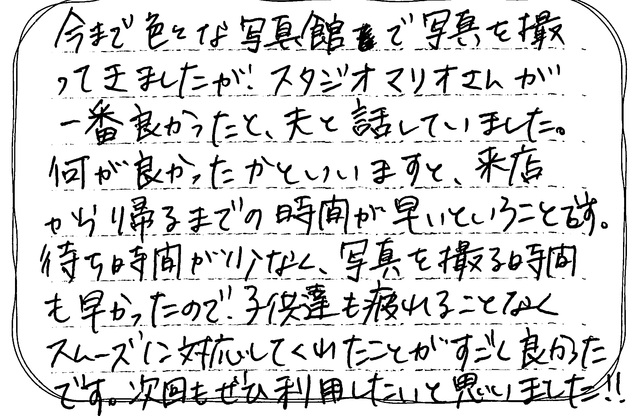 今まで色々な写真館で写真を撮
ってきましたが、スタジオマリオさんが
一番良かったと、夫と話していました。
何が良かったかといいますと、来店
から帰るまでの時間が早いということです。
待ち時間が少なく、写真を撮る時間
も早かったので、子供達も疲れることなく
スムーズに対応してくれたことがすごく良かった
です。次回もぜひ利用したいと思いました!!